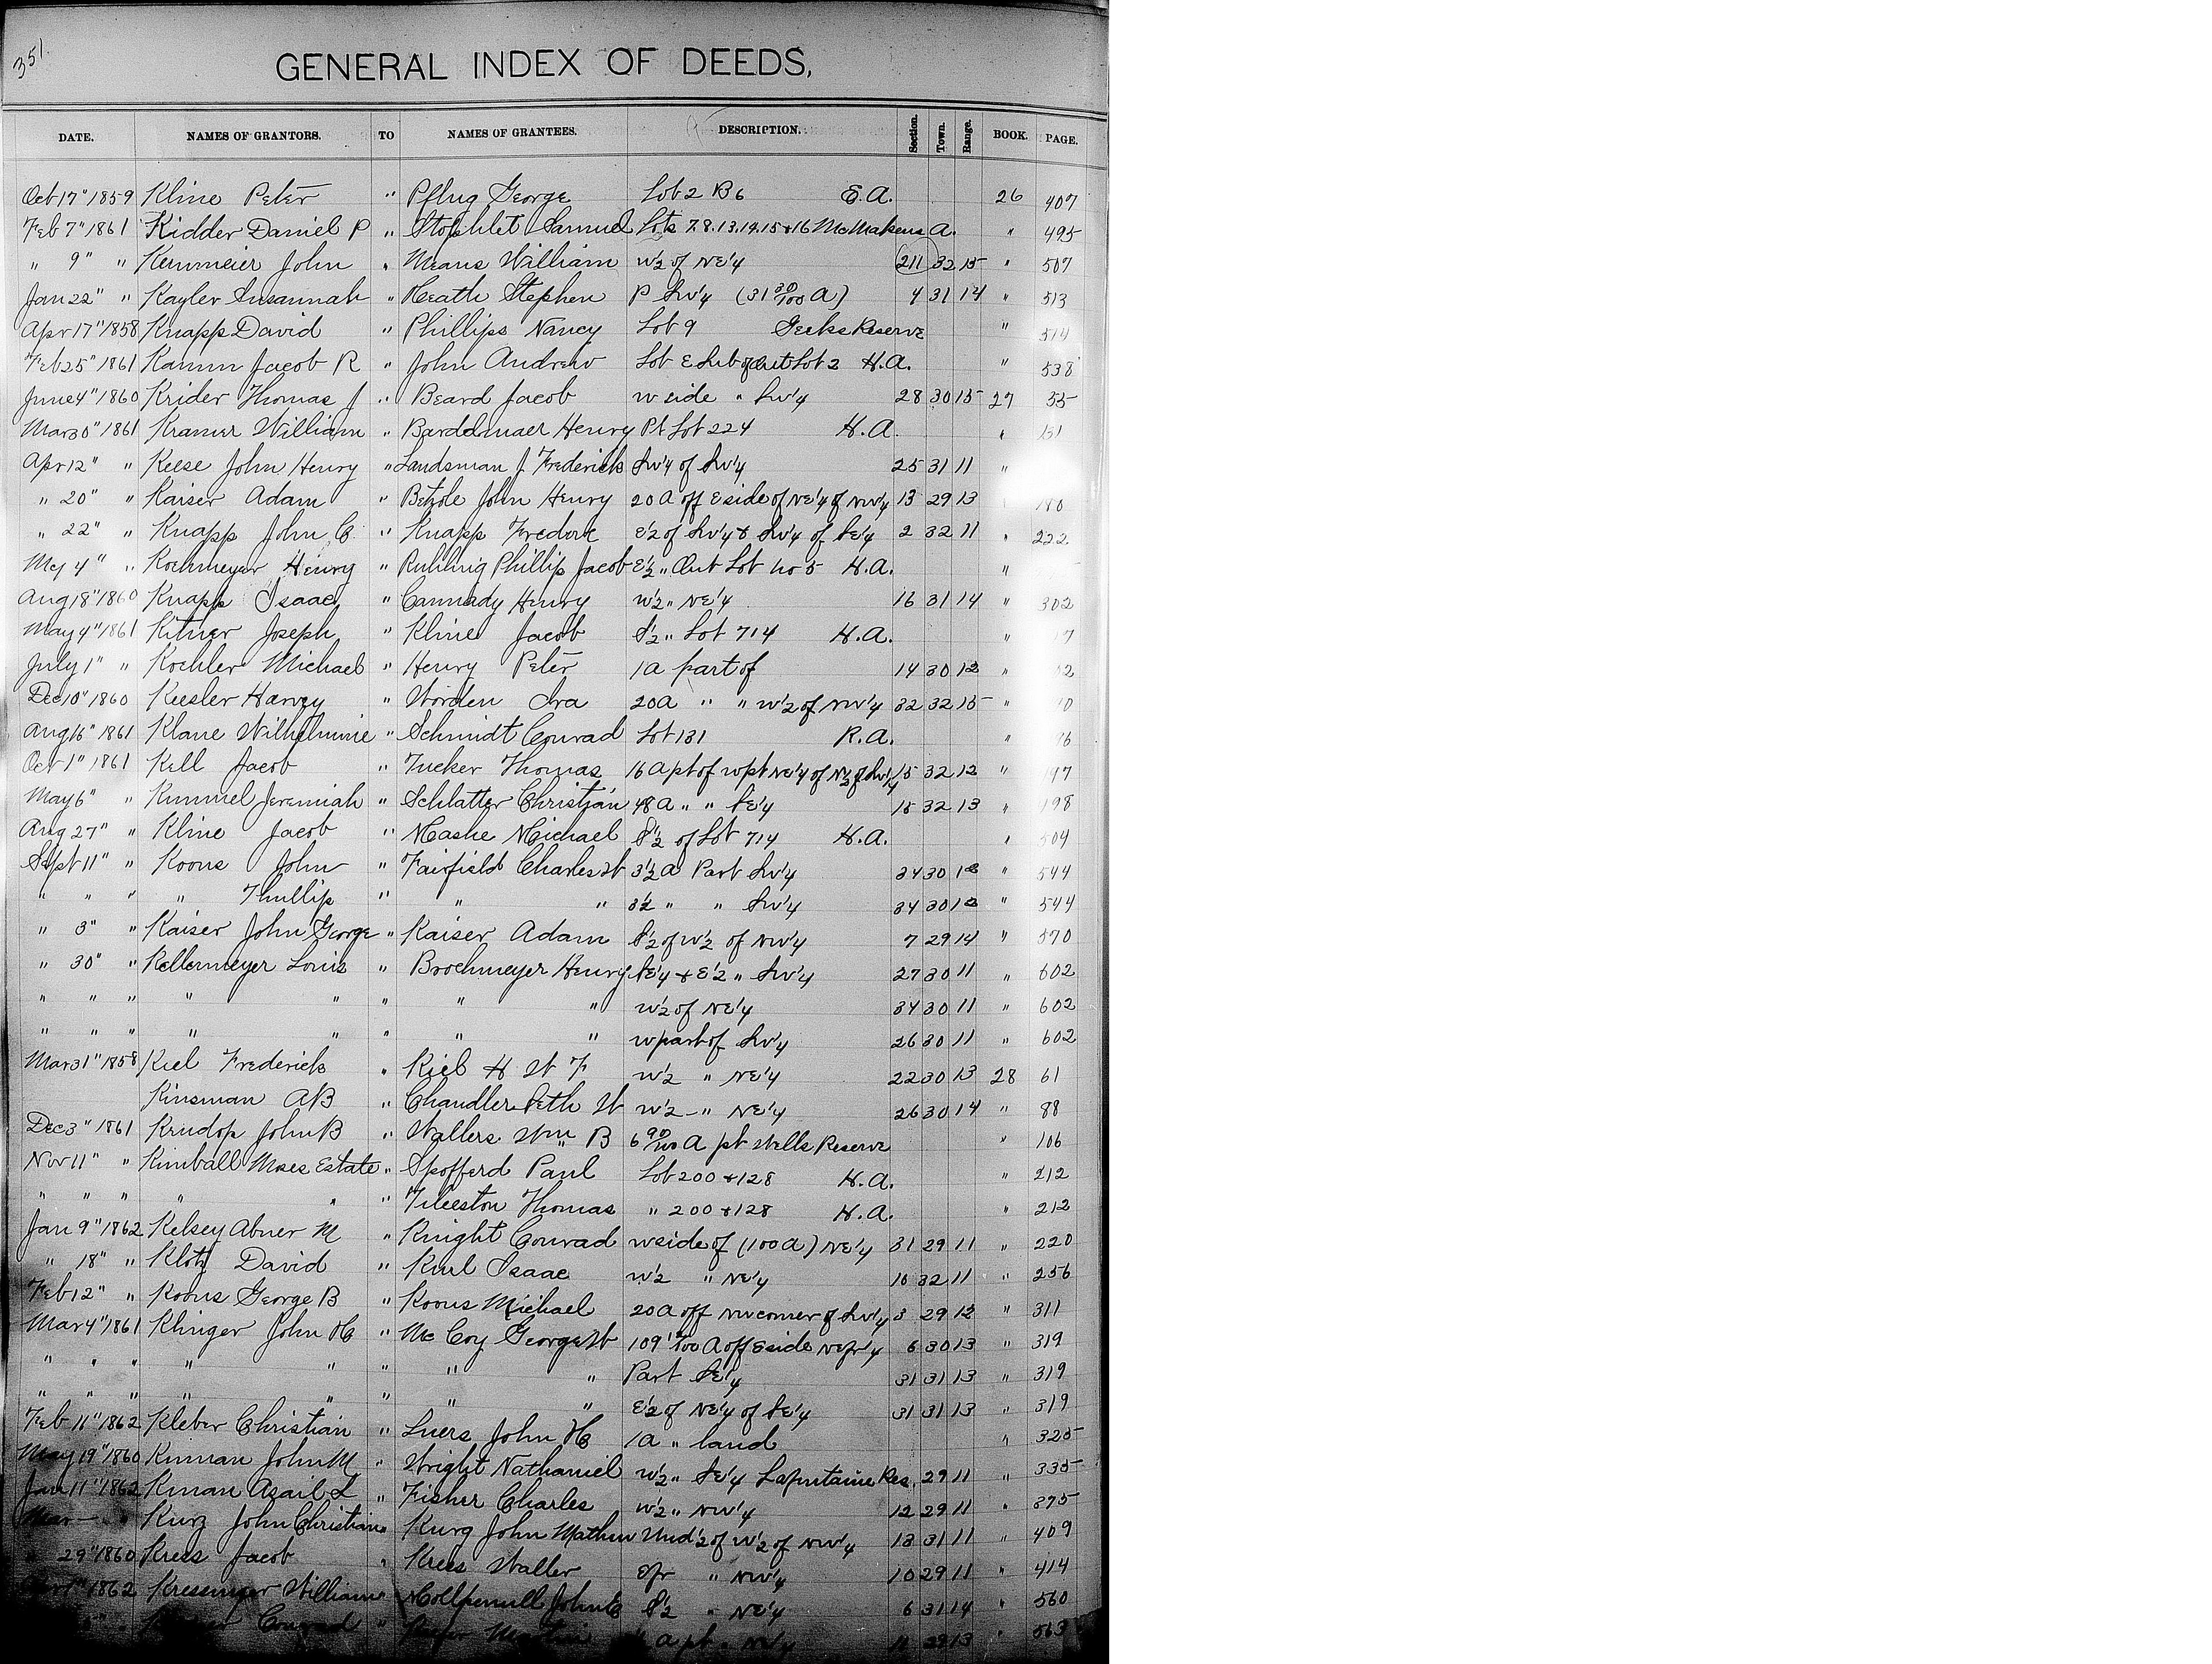 351.
GENERAL INDEX OF DEEDS,
DATE. NAMES OF GRANTORS. TO NAMES OF GRANTEES. DESCRIPTION. Section. Town. Range. BOOK. PAGE.
Oct 17" 1859 Kline Peter " Pflug George Lot 2 B6 E.A. 26 407
Feb 7" 1861 Kidder Daniel P " Stophlet Samuel Lots 7.8.13.14.15+16 McMakens A. " 495
" 9" " Kernmeier John " Means William W½ of NE¼ 211 32 15 " 507
Jan 22" " Kayler Susannah " Heath Stephen P SW¼ (31 30/100 A) 4 31 14 " 513
Apr 17" 1858 Knapp David " Phillips Nancy Lot 9 Geeks Reserve " 514
Feb 25" 1861 Kamm Jacob R " John Andrew Lot E Sub of Out Lot 2 H.A. " 538
June 4" 1860 Krider Thomas J " Beard Jacob W side " SW¼ 28 30 15 27 35
Mar 30" 1861 Kramer William " Henry Pt Lot 224 H.A. " 131
Apr 12" " Keese John Henry " Landsman J Frederick SW¼ of SW¼ 25 31 11 "
" 20" " Kaiser Adam " John Henry 20A off E side of NE¼ of NW¼ 13 29 13
" 22" " Knapp John C " Knapp E½ of SW¼ & SW¼ of SE¼ 2 32 11 " 222
May 4" " Henry " Phillip Jacob E½ " Out Lot no 5 H.A. "
Aug 18" 1860 Knapp Isaac " Cannady Henry W½ " NE¼ 16 31 14 " 302
May 4" 1861 Kitner Joseph " Kline Jacob S½ " Lot 714 H.A. " 7
July 1" " Kochler Michael " Henry Peter 1A part of 14 30 12 " 2
Dec 10" 1860 Keesler Harvey " Worden Ira 20A " " W½ of NW¼ 32 32 15 "
Aug 16" 1861 Klane Wilhelmine " Schmidt Conrad Lot 131 R.A. " 6
Oct 1" 1861 Kell Jacob " Tucker Thomas 16A pt of W pt NE¼ of N½ of SW¼ 15 32 12 " 197
May 6" " Kummel Jeremiah " Schlatter Christian 48A " " SE¼ 15 32 13 " 198
Aug 27" " Kline Jacob " Michael S½ of Lot 714 H.A. " 504
Sept 11" " Koons John " Fairfield Charles W 3½A Part SW¼ 34 30 12 " 544
" " " " Phillip " " " 3½ " " SW¼ 34 30 12 " 544
" 3" " Kaiser John George " Kaiser Adam S½ of W½ of NW¼ 7 29 14 " 570
" 30" " Kellermeyer Louis " Brockmeyer Henry SE¼ + E½ " SW¼ 27 30 11 " 602
" " " " " " " " W½ of NE¼ 34 30 11 " 602
" " " " " " " " W part of SW¼ 26 30 11 " 602
Mar 31" 1858 Kiel Frederick " Kiel H W F W½ " NE¼ 22 30 13 28 61
Kinsman AB " Chandler Seth W W½ " NE¼ 26 30 14 " 88
Dec 3" 1861 Krudop John B " Wallers Wm B 6 90/100 A pt Wells Reserve " 106
Nov 11" " Kimball Moses Estate " Spofferd Paul Lot 200 + 128 H.A. " 212
" " " " " " Tileston Thomas " 200 + 128 H.A. " 212
Jan 9" 1862 Kelsey Abner M " Knight Conrad W side of (100A) NE¼ 31 29 11 " 220
" 18" " Klotz David " Kurl Isaac W½ " NE¼ 10 32 11 " 256
Feb 12" " Koons George B " Koons Michael 20A off NW corner of SW¼ 3 29 12 " 311
Mar 4" 1861 Klinger John H " McCoy George W A off E side NE fr¼ 6 30 13 " 319
" " " " " " " " Part SE¼ 31 31 13 " 319
" " " " " " " " E½ of NE¼ of SE¼ 31 31 13 " 319
Feb 11" 1862 Kleber Christian " Luers John H 1A " land " 325
May 19" 1860 Kinnan John M " Wright Nathaniel W½ " SE¼ Lafontaine Res. 29 11 " 335
Jan 11" 1862 Kinnan Asail L " Fisher Charles W½ " NW¼ 12 29 11 " 375
Mar — " Kurz John Christian " Kurz John Und½ of W½ of NW¼ 13 31 11 " 409
" 29" 1860 Krees Jacob " Krees Waller " NW¼ 10 29 11 " 414
1" 1862 Kressinger William " John S½ " NE¼ 6 31 14 " 560
Conrad " A pt " NE¼ 29 13 " 563